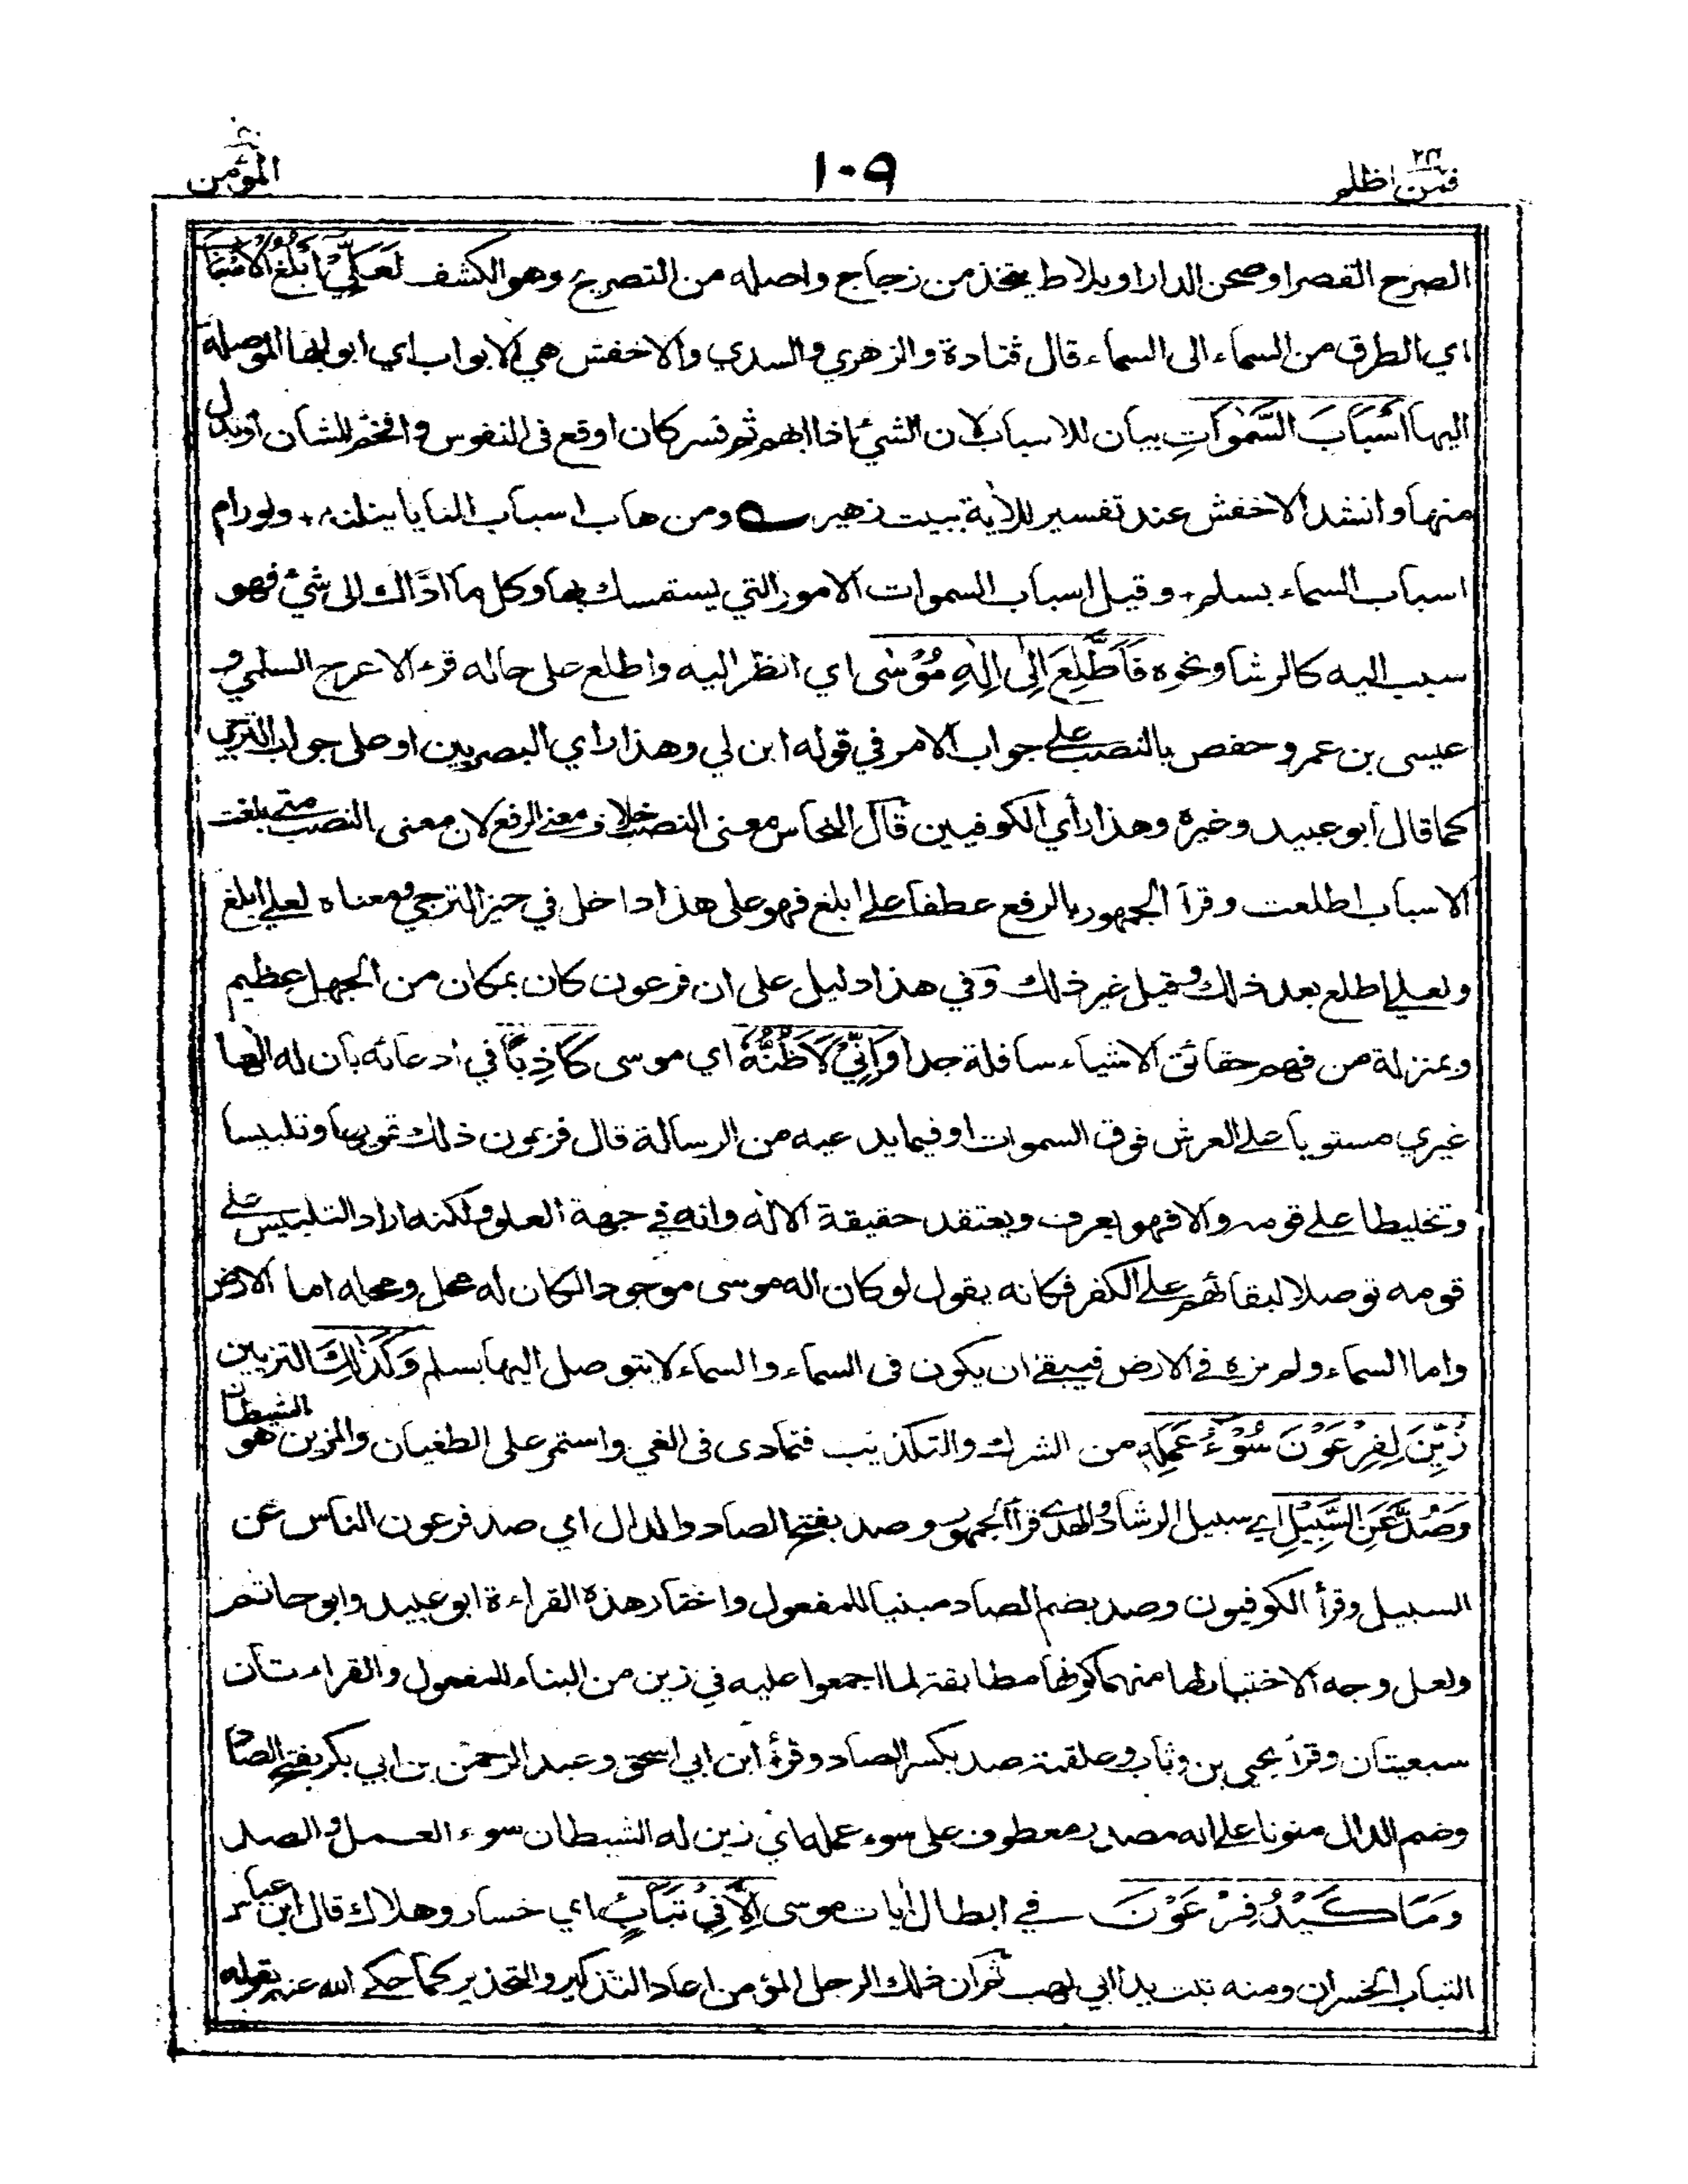 فمن اظلم ٢٤
١٠٩
المؤمن
الصرح القصر او صحن الدار او بلاط يتخذ من زجاج واصله من التصريح وهو الكشف لَعَلِّيْ اَبْلُغُ الْاَسْبَابَ
اي الطرق من السماء الى السماء قال قتادة والزهري والسدي والاخفش هي الابواب اي ابوابها الموصلة
اليها اَسْبَابَ السَّمٰوَاتِ بيان للاسباب لان الشئ اذا ابهم ثم فسر كان اوقع فى النفوس وافخم للشأن او بدل
منها وانشد الاخفش عند تفسير للاية ببيت زهير ؎ ومن هاب اسباب المنايا ينلنه + ولو رام
اسباب السماء بسلم + وقيل اسباب السموات الامور التي يستمسك بها وكل ما ادّاك الى شئ فهو
سبب اليه كالرشا ونحوه فَاَطَّلِعَ اِلٰى اِلٰهِ مُوْسٰى اي انظر اليه واطلع على حاله قرء الاعرج السلمي و
عيسى بن عمر وحفص بالنصب على جواب الامر في قوله ابن لي وهذا راي البصريين او على جواب الترجي
كما قال ابو عبيد وغيره وهذا رأي الكوفيين قال النحاس معنى النصب خلاف معنى الرفع لان معنى النصب متى بلغت
الاسباب اطلعت وقرأ الجمهور بالرفع عطفا على ابلغ فهو على هذا داخل في حيز الترجي ومعناه لعلي ابلغ
ولعلي اطلع بعد ذلك وقيل غير ذلك وفي هذا دليل على ان فرعون كان بمكان من الجهل عظيم
وبمنزلة من فهم حقائق الاشياء سافلة جدا وَاِنِّيْ لَاَظُنُّهٗ اي موسى كَاذِبًا في ادعائه بان له الها
غيري مستويا على العرش فوق السموات او فيما يدعيه من الرسالة قال فرعون ذلك تمويها وتلبيسا
وتخليطا على قومه والا فهو يعرف ويعتقد حقيقة الاله وانه في جهة العلو ولكنه اراد التلبيس على
قومه توصلا لبقائهم على الكفر فكانه يقول لو كان اله موسى موجودا لكان له محل ومحله اما الارض
واما السماء ولم نره في الارض فيبقى ان يكون فى السماء والسماء لا يتوصل اليها بسلم وَكَذٰلِكَ التزيين
زُيِّنَ لِفِرْعَوْنَ سُوْٓءُ عَمَلِهٖ من الشرك والتكذيب فتمادى فى الغي واستمر على الطغيان والمزين هو الشيطان
وَصُدَّ عَنِ السَّبِيْلِ اي سبيل الرشاد والهدى قرأ الجمهور وصد بفتح الصاد والدال اي صد فرعون الناس عن
السبيل وقرأ الكوفيون وصد بضم الصاد مبنيا للمفعول واختار هذه القراءة ابو عبيد وابو حاتم
ولعل وجه الاختيار لها منهما كونها مطابقة لما اجمعوا عليه في زين من البناء للمفعول والقراءتان
سبعيتان وقرأ يحيى بن وثاب وعلقمة صد بكسر الصاد وقرأ ابن ابي اسحق وعبد الرحمن بن ابي بكر بفتح الصاد
وضم الدال منونا على انه مصدر معطوف على سوء عمله اي زين له الشيطان سوء العمل والصد
وَمَا كَيْدُ فِرْعَوْنَ في ابطال ايات موسى اِلَّا فِيْ تَبَابٍ اي خسار وهلاك قال ابن عباس
التباب الخسران ومنه تبت يدا ابي لهب ثم ان ذلك الرجل المؤمن اعاد التذكير والتحذير كما حكى الله عنه بقوله